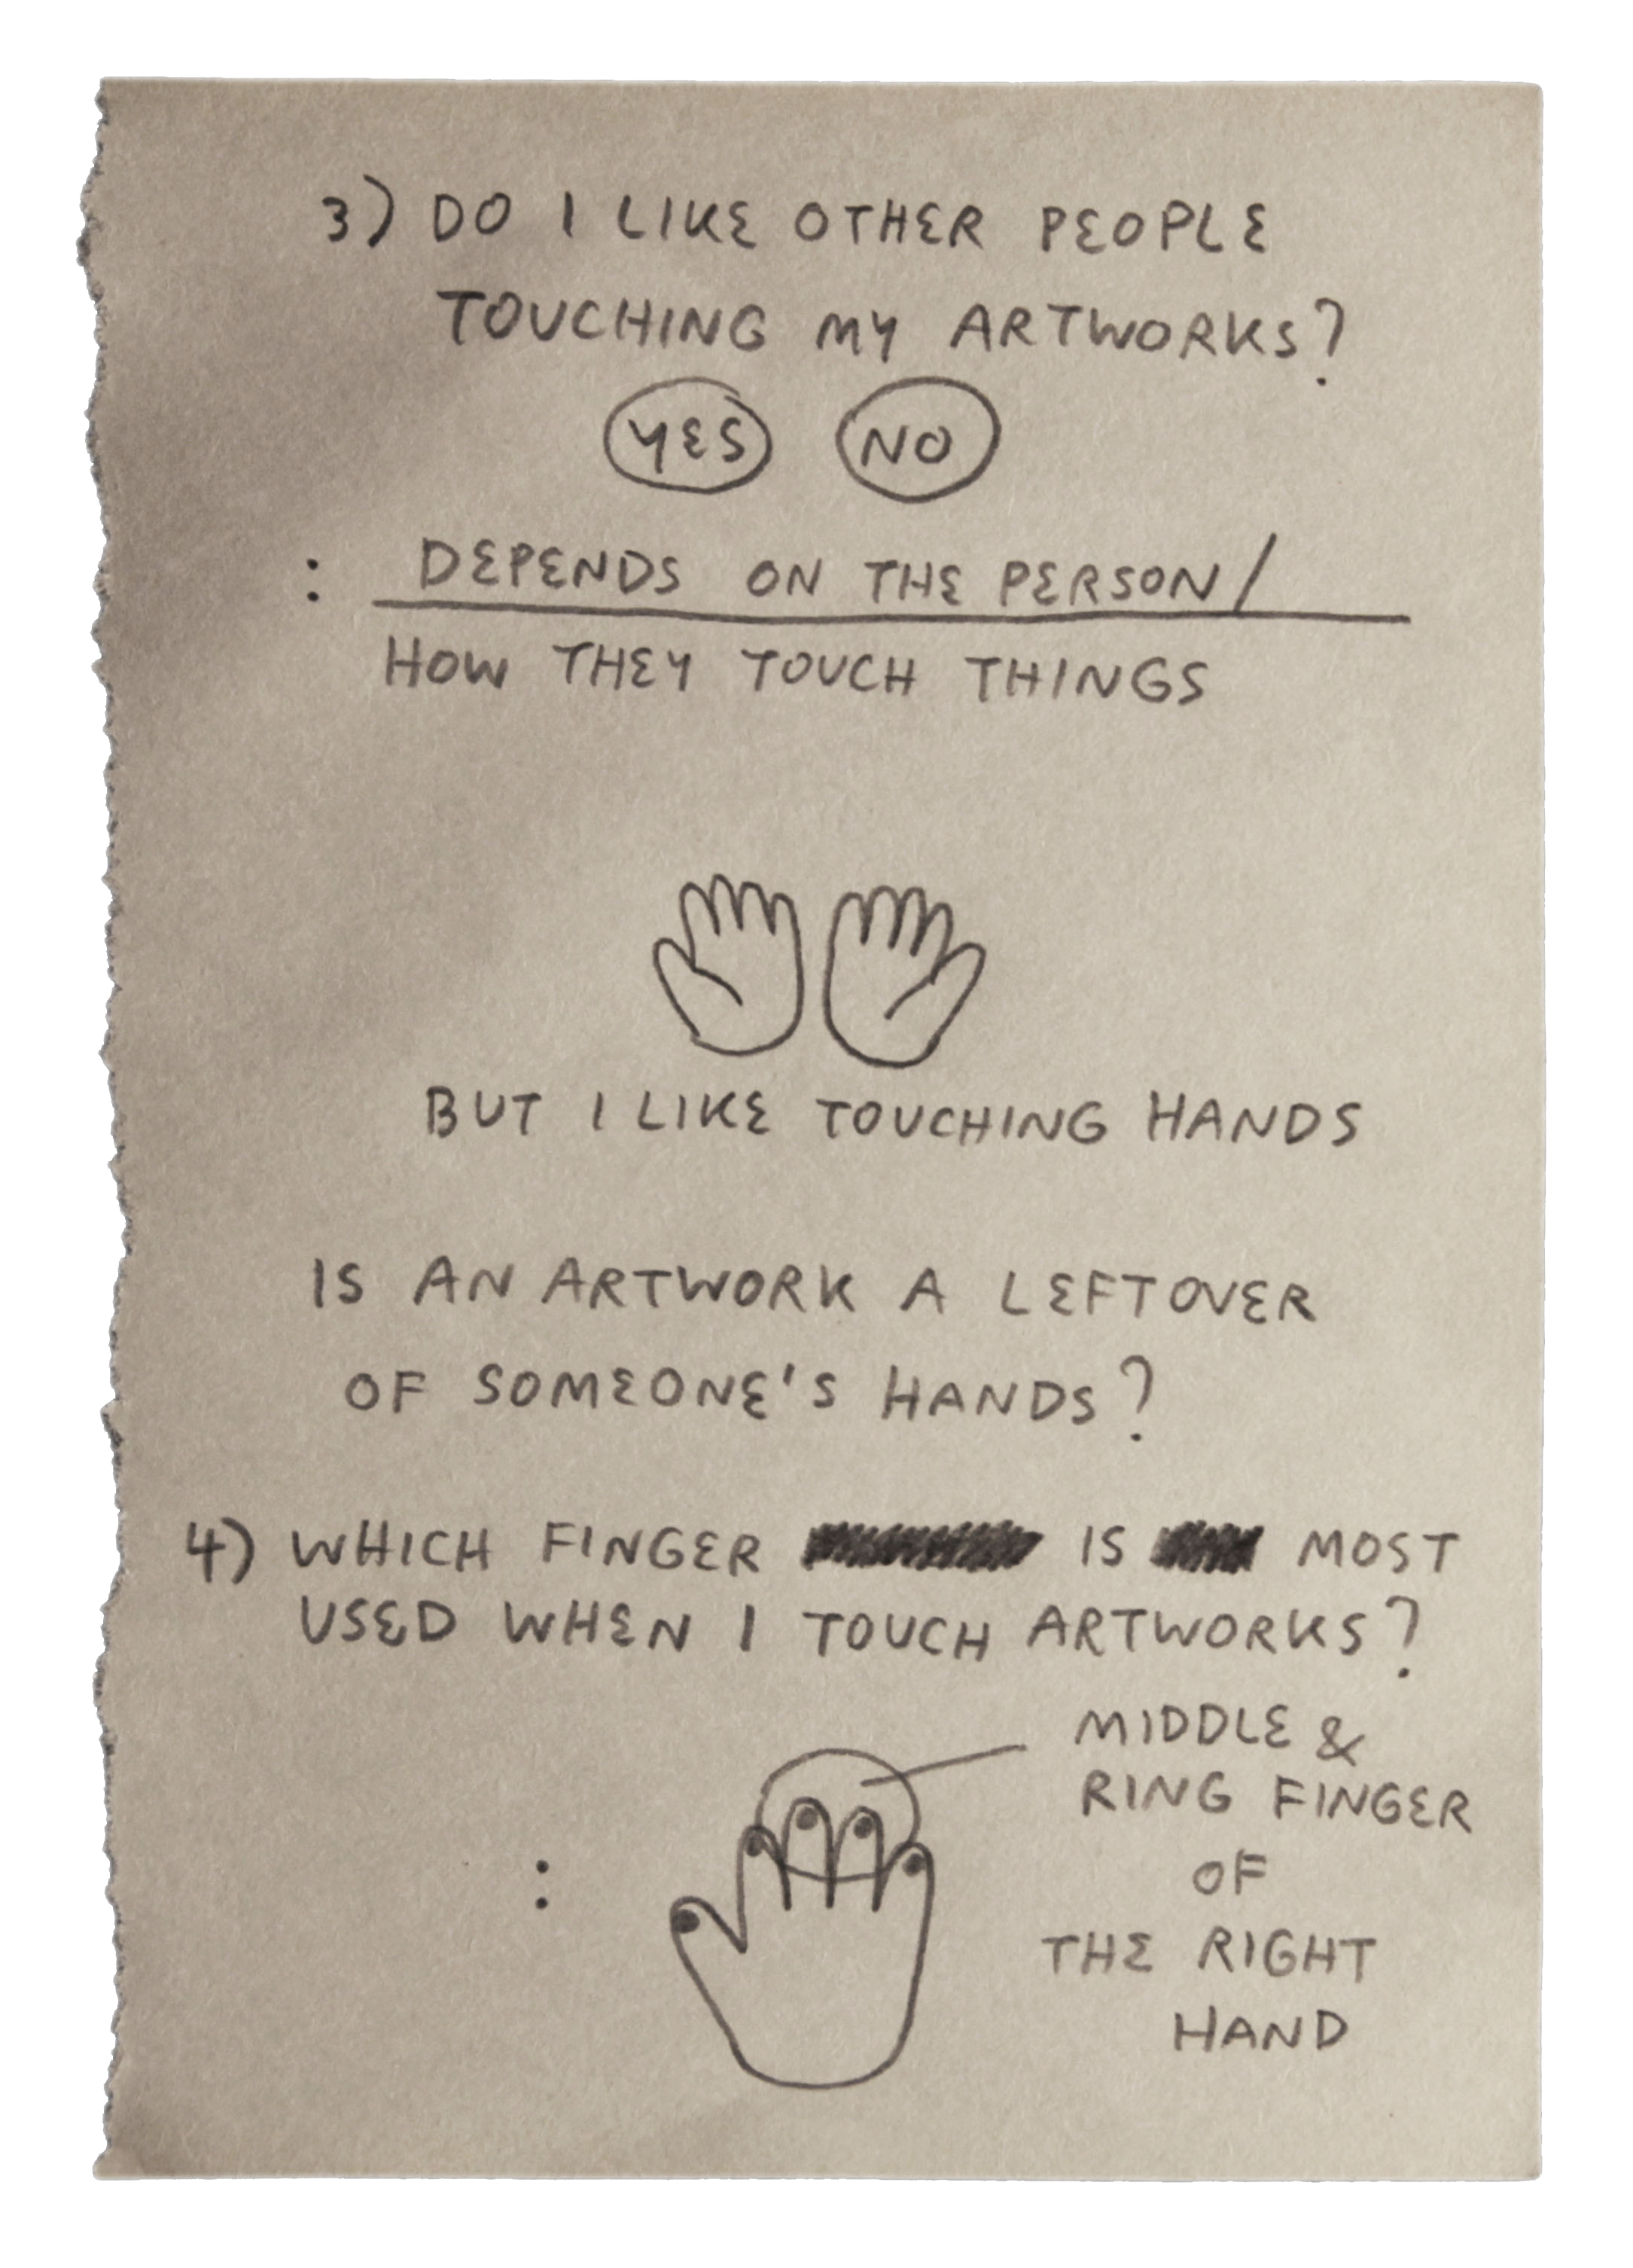 3) DO I LIKE OTHER PEOPLE
TOUCHING MY ARTWORKS?
YES NO
: DEPENDS ON THE PERSON/
HOW THEY TOUCH THINGS
BUT I LIKE TOUCHING HANDS
IS AN ARTWORK A LEFTOVER
OF SOMEONE'S HANDS?
4) WHICH FINGER IS MOST
USED WHEN I TOUCH ARTWORKS?
: MIDDLE &
RING FINGER
OF
THE RIGHT
HAND